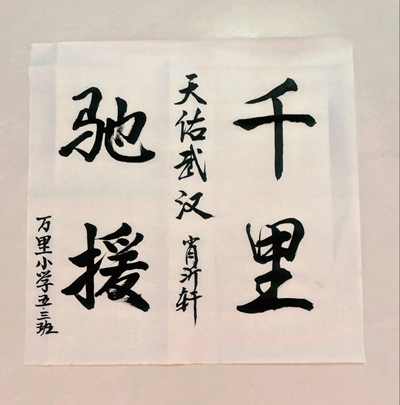 千里
天佑武汉 肖沂轩
驰援
万里小学五三班